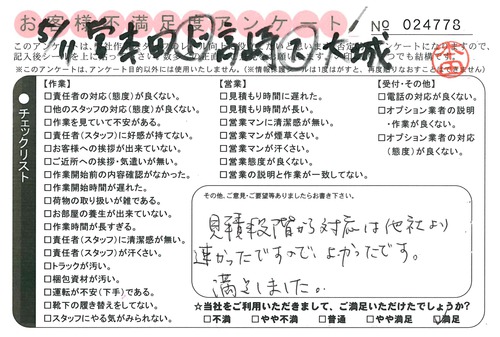 お客様不満足度アンケート
№ 024778
このアンケートは、
記入後シールを上に貼って
※このアンケートは、アンケート目的以外には使用いたしません。（※情報保護シールは1度はがすと、再度貼りなおすことはできません）
チェックリスト
【作業】
□責任者の対応（態度）が良くない。
□他のスタッフの対応（態度）が良くない。
□作業を見ていて不安がある。
□責任者（スタッフ）に好感が持てない。
□お客様への挨拶が出来ていない。
□ご近所への挨拶・気遣いが無い。
□作業開始前の内容確認がなかった。
□作業開始時間が遅れた。
□荷物の取り扱いが雑である。
□お部屋の養生が出来ていない。
□作業時間が長すぎる。
□責任者（スタッフ）に清潔感が無い。
□責任者（スタッフ）が汗くさい。
□トラックが汚い。
□梱包資材が汚い。
□運転が不安（下手）である。
□靴下の履き替えをしてない。
□スタッフにやる気がみられない。
【営業】
□見積もり時間に遅れた。
□見積もり時間が長い。
□営業マンに清潔感が無い。
□営業マンが煙草くさい。
□営業マンが汗くさい。
□営業態度が良くない。
□営業の説明と作業が一致してない。
【受付・その他】
□電話の対応が良くない。
□オプション業者の説明
・作業が良くない。
□オプション業者の対応
（態度）が良くない。
その他、ご意見・ご要望等ありましたらお書き下さい。
見積段階から対応は他社より
速かったですので、よかったです。
満足しました。
☆当社をご利用いただきまして、ご満足いただけたでしょうか？
□不満 □やや不満 □普通 □やや満足 □満足